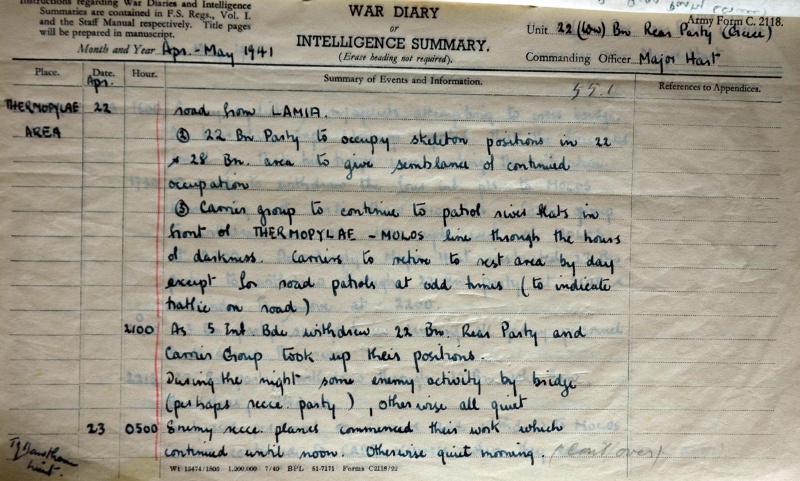 Instructions regarding War Diaries and Intelligence
Summaries are contained in F.S. Regs., Vol. I.
and the Staff Manual respectively. Title pages
will be prepared in manuscript.
Month and Year Apr. - May 1941
WAR DIARY
or
INTELLIGENCE SUMMARY.
(Erase heading not required).
Army Form C. 2118.
Unit 22 Bn Rear Party (Greece)
Commanding Officer Major Hart
Place. Date. Hour. Summary of Events and Information. References to Appendices.
Apr. 55.1
THERMOPYLAE 22 road from LAMIA.
AREA ② 22 Bn Party to occupy skeleton positions in 22
& 28 Bn. area to give semblance of continued
occupation
③ Carrier group to continue to patrol river flats in
front of THERMOPYLAE - MOLOS line through the hours
of darkness. Carriers to retire to rest area by day
except for road patrols at odd times (to indicate
traffic on road)
2100 As 5 Inf. Bde withdrew 22 Bn. Rear Party and
Carrier Group took up their positions.
During the night some enemy activity by bridge
(perhaps recce. party), otherwise all quiet
23 0500 Enemy recce. planes commenced their work which
continued until noon. Otherwise quiet morning. (Cont over)
Lieut.
Wt 13474/1805 1,200,000 7/40 BPL 51-7171 Forms C2118/22